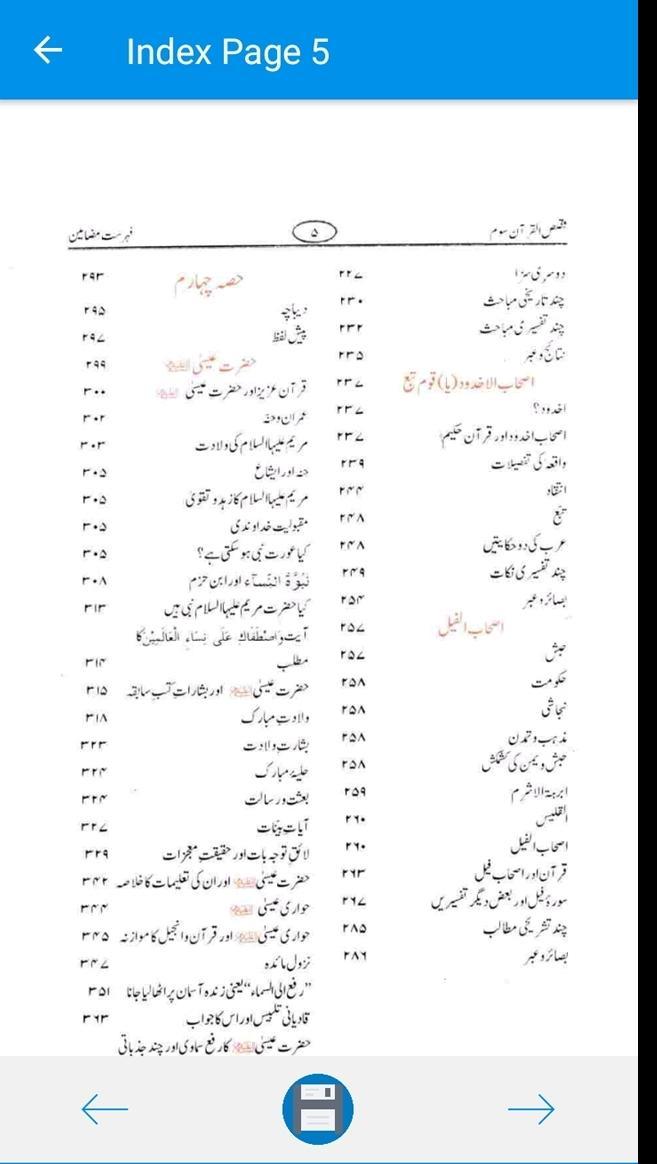 Index Page 5
قصص القرآن سوم
۵
فہرست مضامین
دوسری سزا ۲۲۷
چند تاریخی مباحث ۲۳۰
چند تفسیری مباحث ۲۳۲
نتائج و عبر ۲۳۵
اصحاب الاخدود (یا) قوم تبع ۲۳۷
اخدود؟ ۲۳۷
اصحاب اخدود اور قرآن حکیم ۲۳۷
واقعہ کی تفصیلات ۲۳۹
انتقاد ۲۴۴
تبع ۲۴۸
عرب کی دو حکایتیں ۲۴۸
چند تفسیری نکات ۲۴۹
بصائر و عبر ۲۵۴
اصحاب الفیل ۲۵۷
حبش ۲۵۷
حکومت ۲۵۸
نجاشی ۲۵۸
مذہب و تمدن ۲۵۸
حبش و یمن کی کشمکش ۲۵۸
ابرہۃ الاشرم ۲۵۹
القلیس ۲۶۰
اصحاب الفیل ۲۶۰
قرآن اور اصحاب فیل ۲۶۳
سورۂ فیل اور بعض دیگر تفسیریں ۲۶۷
چند تشریحی مطالب ۲۸۵
بصائر و عبر ۲۸۶
حصہ چہارم ۲۹۳
دیباچہ ۲۹۵
پیش لفظ ۲۹۷
حضرت عیسیٰ ۲۹۹
قرآن عزیز اور حضرت عیسیٰ ۳۰۰
عمران و حنہ ۳۰۲
مریم علیہا السلام کی ولادت ۳۰۳
حنہ اور ایشاع ۳۰۵
مریم علیہا السلام کا زہد و تقویٰ ۳۰۵
مقبولیت خداوندی ۳۰۵
کیا عورت نبی ہو سکتی ہے؟ ۳۰۵
نُبُوَّةُ النِّسَآء اور ابن حزم ۳۰۸
کیا حضرت مریم علیہا السلام نبی ہیں ۳۱۳
آیت وَاصْطَفَاكِ عَلَى نِسَاءِ الْعَالَمِيْنَ کا
مطلب ۳۱۴
حضرت عیسیٰ اور بشاراتِ کتب سابقہ ۳۱۵
ولادت مبارک ۳۱۸
بشارتِ ولادت ۳۲۳
حلیۂ مبارک ۳۲۴
بعثت و رسالت ۳۲۴
آیات بینات ۳۲۷
لائق توجہ بات اور حقیقت معجزات ۳۲۹
حضرت عیسیٰ اور ان کی تعلیمات کا خلاصہ ۳۴۲
حواری عیسیٰ ۳۴۴
حواری عیسیٰ اور قرآن و انجیل کا موازنہ ۳۴۵
نزول مائدہ ۳۴۷
”رفع الی السماء“ یعنی زندہ آسمان پر اٹھا لیا جانا ۳۵۱
قادیانی تلبیس اور اس کا جواب ۳۶۳
حضرت عیسیٰ کا رفع سماوی اور چند جذباتی